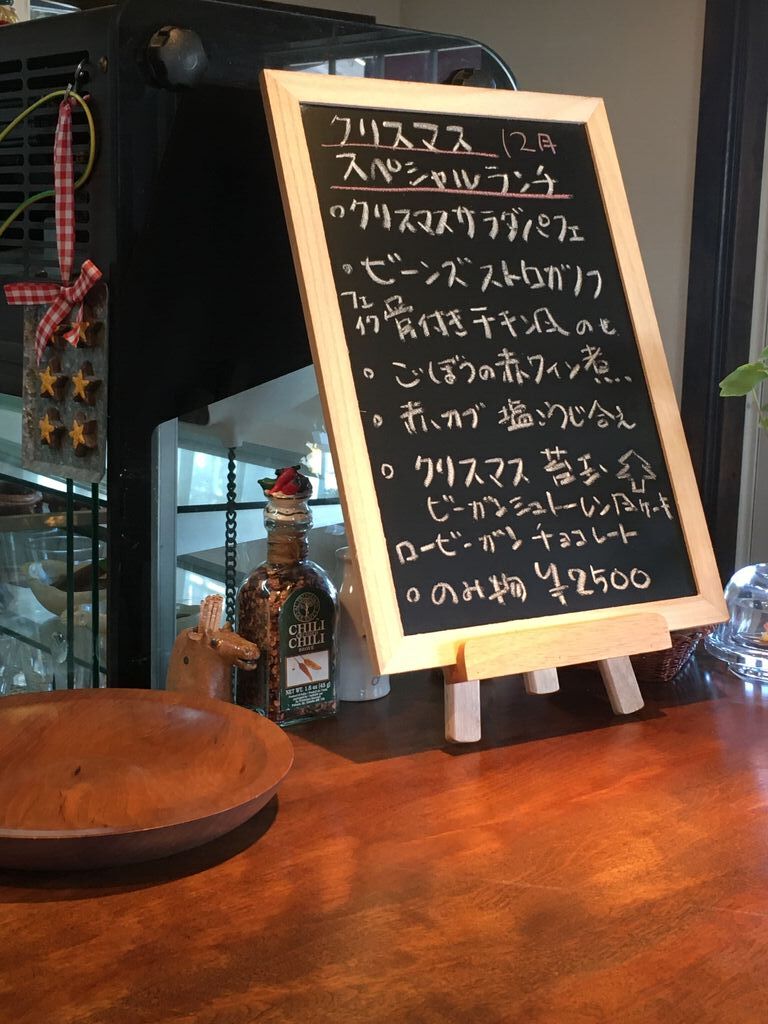 クリスマス 12月
スペシャルランチ
○クリスマスサラダパフェ
・ビーンズストロガノフ
フェイク 骨付きチキン風のもの
○ごぼうの赤ワイン煮
○赤カブ 塩こうじ合え
○クリスマス 苔玉
ビーガンシュトーレン風ケーキ
ロービーガンチョコレート
○のみ物 ¥2500
CHILI
CHILI
NET WT. 1.6 oz (45 g)